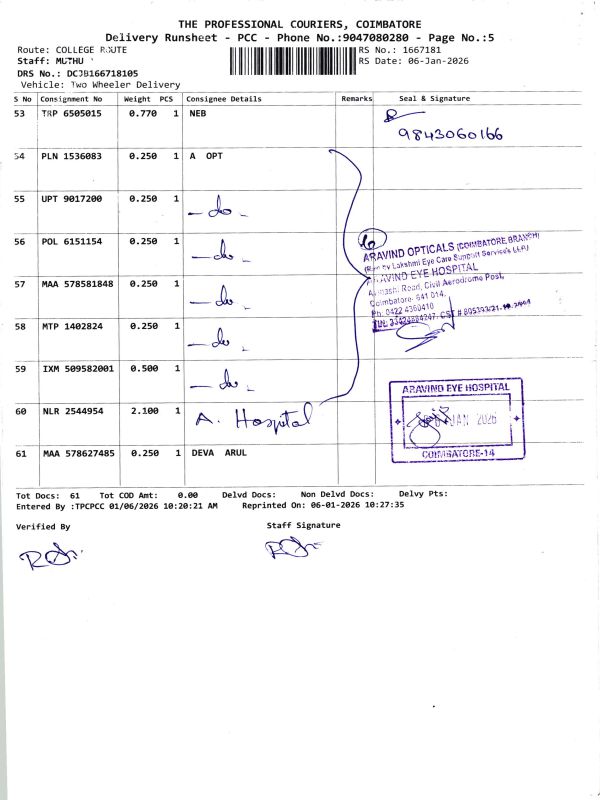 THE PROFESSIONAL COURIERS, COIMBATORE
Delivery Runsheet - PCC - Phone No.:9047080280 - Page No.:5
Route: COLLEGE ROUTE
RS No.: 1667181
Staff: MUTHU
RS Date: 06-Jan-2026
DRS No.: DCJB166718105
Vehicle: Two Wheeler Delivery
S No Consignment No Weight PCS Consignee Details Remarks Seal & Signature
53 TRP 6505015 0.770 1 NEB
9843060166
54 PLN 1536083 0.250 1 A OPT
55 UPT 9017200 0.250 1 - do -
56 POL 6151154 0.250 1 - do -
ARAVIND OPTICALS (COIMBATORE BRANCH)
Lakshmi Eye Care Support Services LLP)
ARAVIND EYE HOSPITAL
57 MAA 578581848 0.250 1 - do -
Avinashi Road, Civil Aerodrome Post,
Coimbatore- 641 014.
Ph: 0422 4360410
58 MTP 1402824 0.250 1 - do -
59 IXM 509582001 0.500 1 - do -
60 NLR 2544954 2.100 1 A. Hospital
ARAVIND EYE HOSPITAL
JAN 2026
COIMBATORE-14
61 MAA 578627485 0.250 1 DEVA ARUL
Tot Docs: 61 Tot COD Amt: 0.00 Delvd Docs: Non Delvd Docs: Delvy Pts:
Entered By :TPCPCC 01/06/2026 10:20:21 AM Reprinted On: 06-01-2026 10:27:35
Verified By
Staff Signature